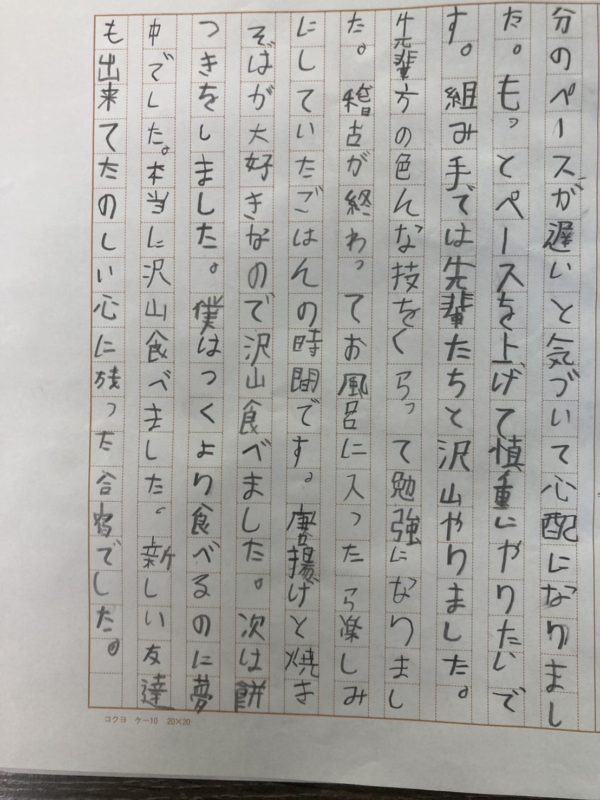 分のペースが遅いと気づいて心配になりまし
た。もっとペースを上げて慎重にやりたいで
す。組み手では先輩たちと沢山やりました。
先輩方の色んな技をくらって勉強になりまし
た。稽古が終わってお風呂に入ったら楽しみ
にしていたごはんの時間です。唐揚げと焼き
そばが大好きなので沢山食べました。次は餅
つきをしました。僕はつくより食べるのに夢
中でした。本当に沢山食べました。新しい友達
も出来てたのしい心に残った合宿でした。
コクヨ ケー10 20×20